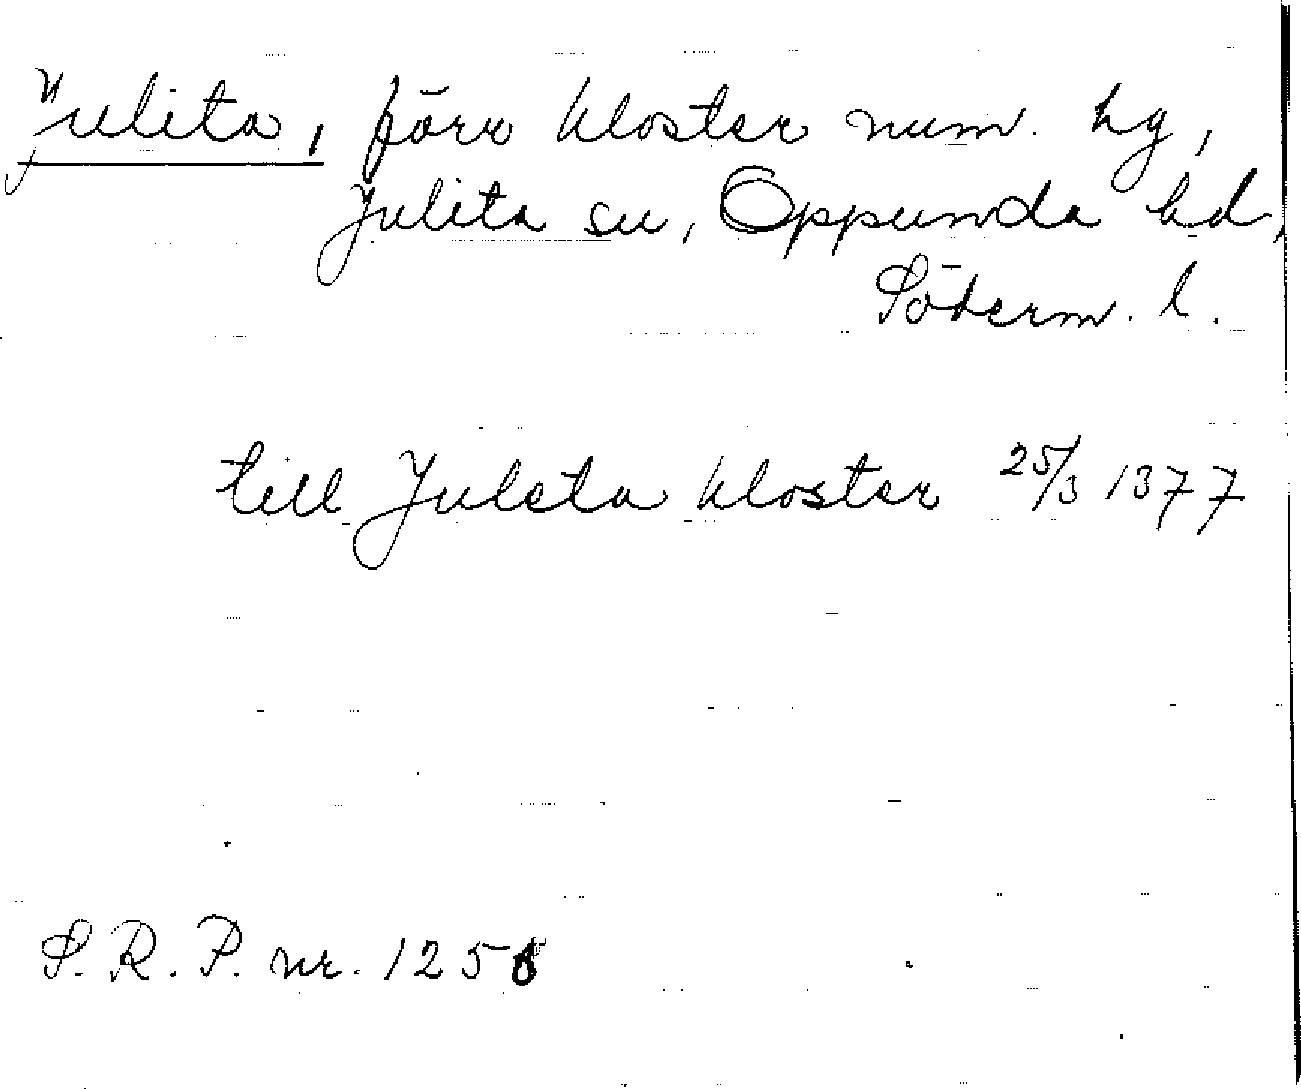 Julita, förr kloster num. hg,
Julita sn, Oppunda hd,
Söderm. l.
till Juleta kloster 25/3 1377
S. R. P. nr. 1256